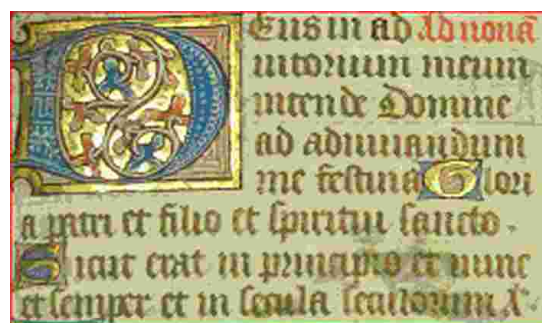 Deus in ad Ad nonā
iutorium meum
intende Domine
ad adiuuandum
me festina Glori
a patri et filio et spiritui sancto .
Sicut erat in principio et nunc
et semper et in secula seculorum